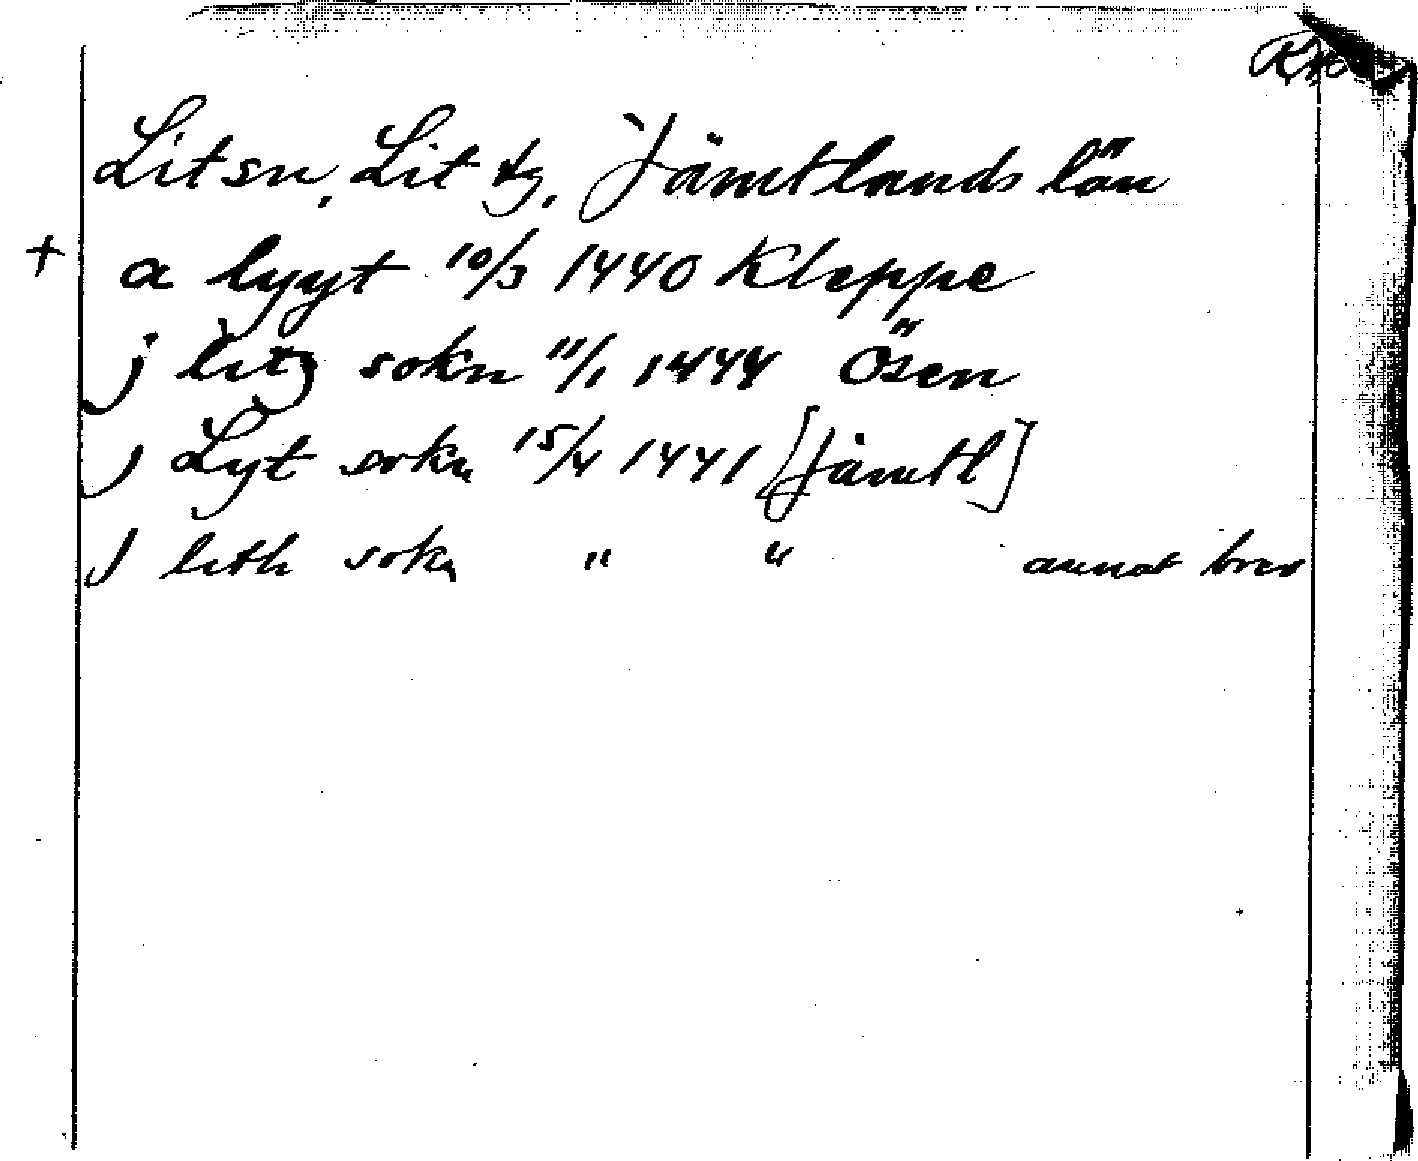 Lit sn, Lit tg, Jämtlands län
+ a lyyt 10/3 1440 Kleppe
j litz sokn 11/1 1444 Ösen
j Lyt sokn 15/4 1441 [Jämtl]
j lith sokn " " annat brev